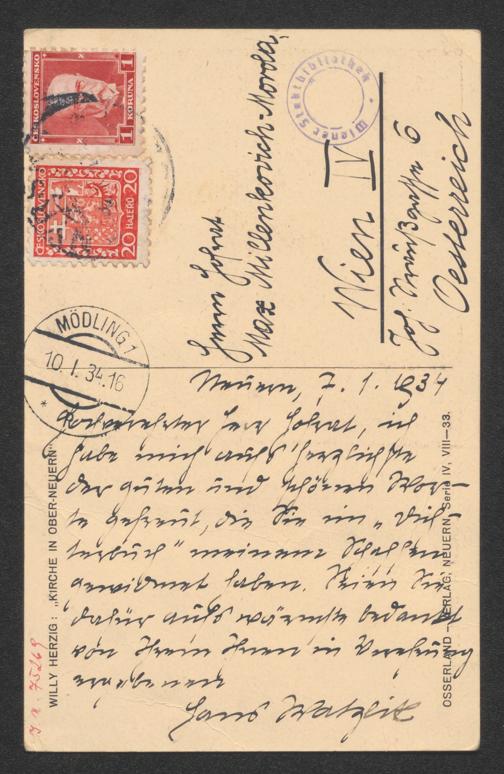 ČESKOSLOVENSKO
1 KORUNA 1
ČESKOSLOVENSKO
20 HALÉŘŮ 20
Wiener Stadtbibliothek
Herrn Hofrat
Max Millenkovich-Morold,
Wien IV
Joh. Straußgasse 6
Oesterreich
MÖDLING 1
10. I. 34. 16
*
Neuern, 7. 1. 1934
Hochverehrter Herr Hofrat, ich
habe mich aufs herzlichste
der guten und schönen Wor-
te gefreut, die Sie im „Dich-
terbuch" meinem Schaffen
gewidmet haben. Seien Sie
dafür aufs wärmste bedankt
von Ihrem Ihnen in Verehrung
ergebenen
Hans Watzlik
WILLY HERZIG: „KIRCHE IN OBER-NEUERN"
OSSERLAND-VERLAG, NEUERN, Serie IV, VIII—33.
J. N. 75269